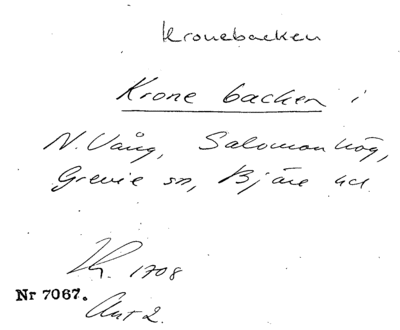 Kronebacken
Krone backen i
N. Vång, Salomonhög,
Grevie sn, Bjäre hd.
1708
Nr 7067.
Akt 2.